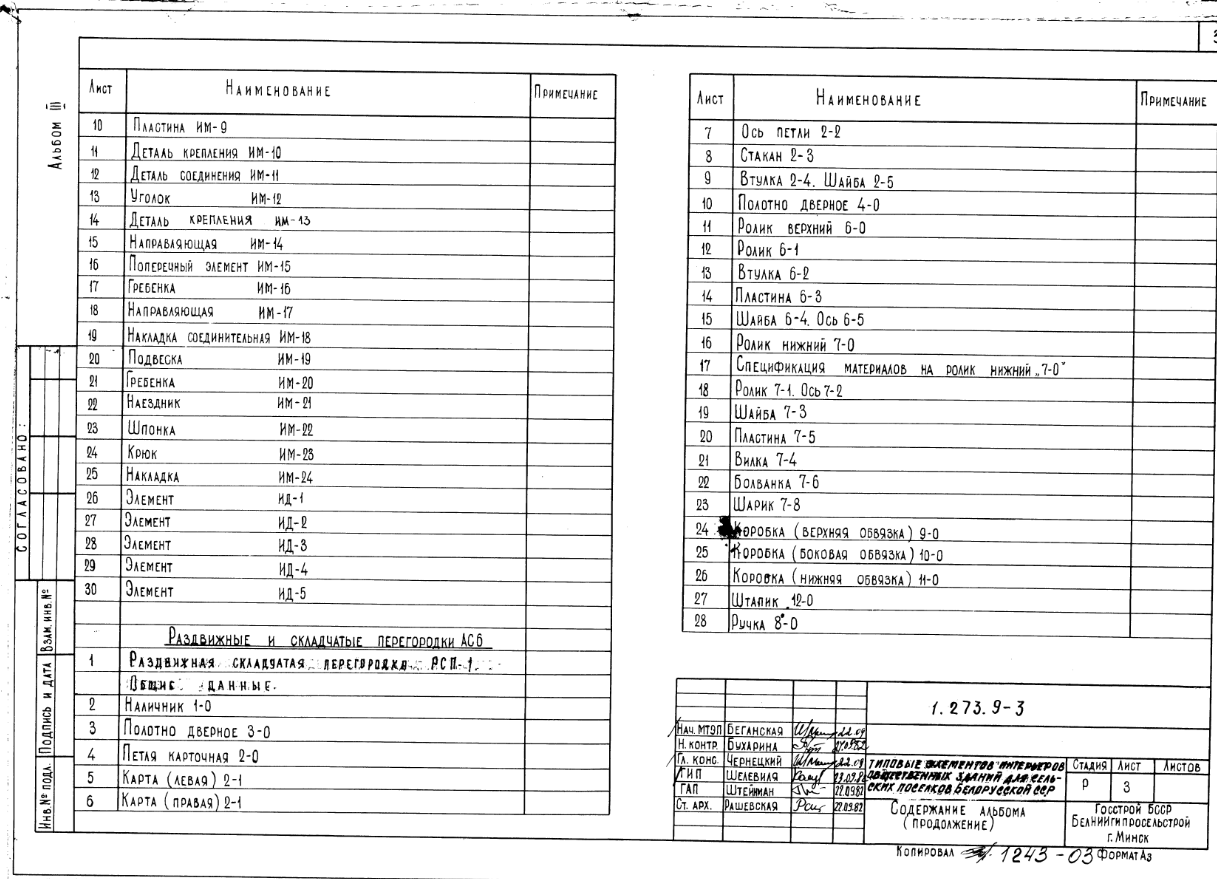 3
Альбом III
Лист Наименование Примечание
10 Пластина ИМ-9
11 Деталь крепления ИМ-10
12 Деталь соединения ИМ-11
13 Уголок ИМ-12
14 Деталь крепления ИМ-13
15 Направляющая ИМ-14
16 Поперечный элемент ИМ-15
17 Гребенка ИМ-16
18 Направляющая ИМ-17
19 Накладка соединительная ИМ-18
20 Подвеска ИМ-19
21 Гребенка ИМ-20
22 Наездник ИМ-21
23 Шпонка ИМ-22
24 Крюк ИМ-23
25 Накладка ИМ-24
26 Элемент ИД-1
27 Элемент ИД-2
28 Элемент ИД-3
29 Элемент ИД-4
30 Элемент ИД-5
Раздвижные и складчатые перегородки АС6
1 Раздвижная складчатая перегородка РСП-1.
Общие данные.
2 Наличник 1-0
3 Полотно дверное 3-0
4 Петля карточная 2-0
5 Карта (левая) 2-1
6 Карта (правая) 2-1
Лист Наименование Примечание
7 Ось петли 2-2
8 Стакан 2-3
9 Втулка 2-4. Шайба 2-5
10 Полотно дверное 4-0
11 Ролик верхний 6-0
12 Ролик 6-1
13 Втулка 6-2
14 Пластина 6-3
15 Шайба 6-4. Ось 6-5
16 Ролик нижний 7-0
17 Спецификация материалов на ролик нижний „7-0"
18 Ролик 7-1. Ось 7-2
19 Шайба 7-3
20 Пластина 7-5
21 Вилка 7-4
22 Болванка 7-6
23 Шарик 7-8
24 Коробка (верхняя обвязка) 9-0
25 Коробка (боковая обвязка) 10-0
26 Коробка (нижняя обвязка) 11-0
27 Штапик 12-0
28 Ручка 8-0
Согласовано:
Взам. инв. №
Подпись и дата
Инв. № подл.
1.273.9-3
Нач. МТЭП Беганская 22.09
Н. контр. Бухарина
Гл. конс. Чернецкий 22.09
ГИП Шелевиля
ГАП Штейнман 22.09.82
Ст. арх. Рашевская 22.09.82
Типовые элементов интерьеров
общественных зданий для сель-
ских поселков Белорусской ССР
Стадия Лист Листов
Р 3
Содержание альбома
(продолжение)
Госстрой БССР
БелНИИгипросельстрой
г. Минск
Копировал 1243-03 Формат А3